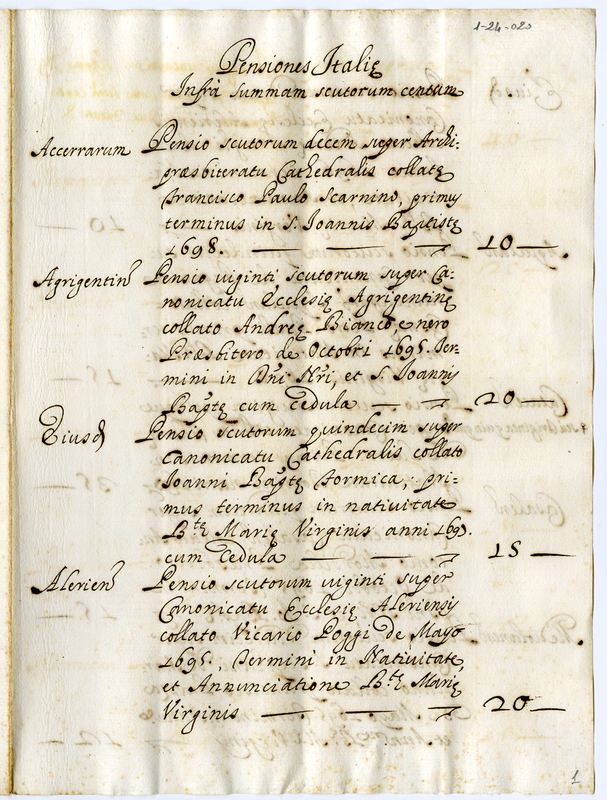 1-24-020
Pensiones Italię
Infrà summam scutorum centum
Accerrarum Pensio scutorum decem super Archi-
præsbiteratu Cathedralis collatę
Francisco Paulo Scarnino, primus
terminus in S. Joannis Baptistę
1698. 10
Agrigentin. Pensio viginti scutorum super Ca-
nonicatu Ecclesię Agrigentinę
collato Andreę Bianco,
Præsbitero de Octobri 1695. Ter-
mini in Dñi Nři, et S. Joannis
Baptę cum Cedula 20
Eiusd. Pensio scutorum quindecim super
canonicatu Cathedralis collato
Joanni Baptę Formica, pri-
mus terminus in nativitate
B.tę Marię Virginis anni
cum Cedula 15
Alerien. Pensio scutorum viginti super
Canonicatu Ecclesię Aleriensis
collato Vicario Poggi de Mayo
1695., Termini in Nativitate,
et Annunciatione B.tę Marię
Virginis 20
1